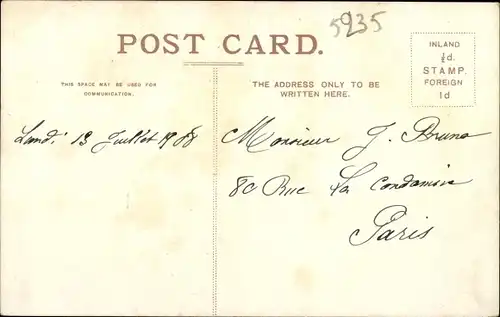 5235
POST CARD.
INLAND
½d.
STAMP.
FOREIGN
1d.
THIS SPACE MAY BE USED FOR
COMMUNICATION.
THE ADDRESS ONLY TO BE
WRITTEN HERE.
Lundi 13 Juillet 1908
Monsieur J. Bruno
80 Rue La Condamine
Paris